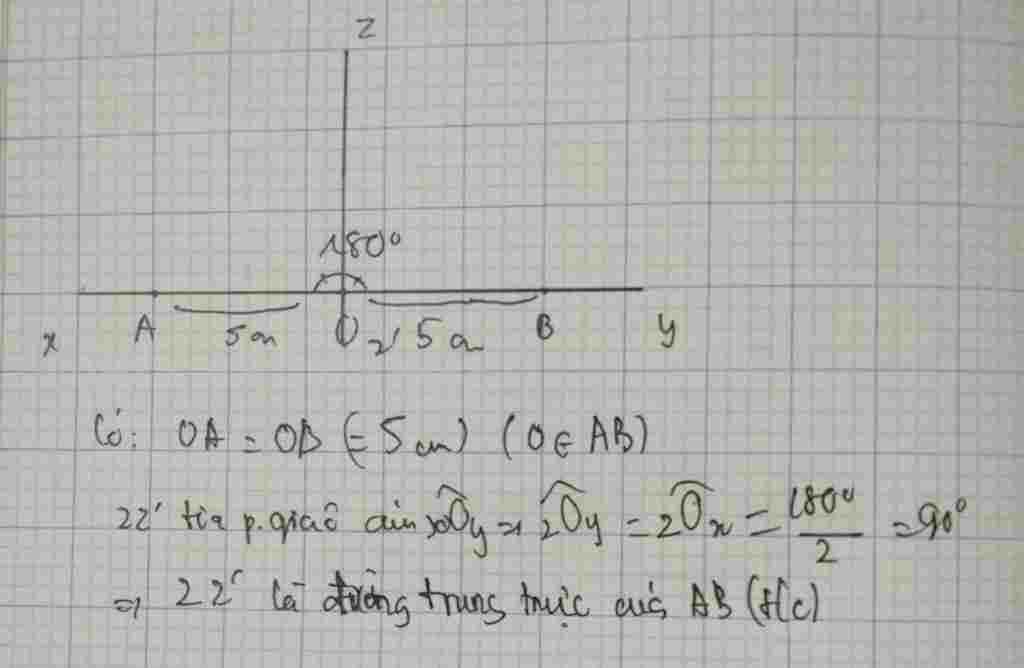 z
180°
x A 5cm O z' 5cm B y
Có: OA = OB (= 5cm) (O ∈ AB)
zz' tia p.giác của xOy => zOy = zOx = 180°/2 = 90°
=> zz' là đường trung trực của AB (đ/c)